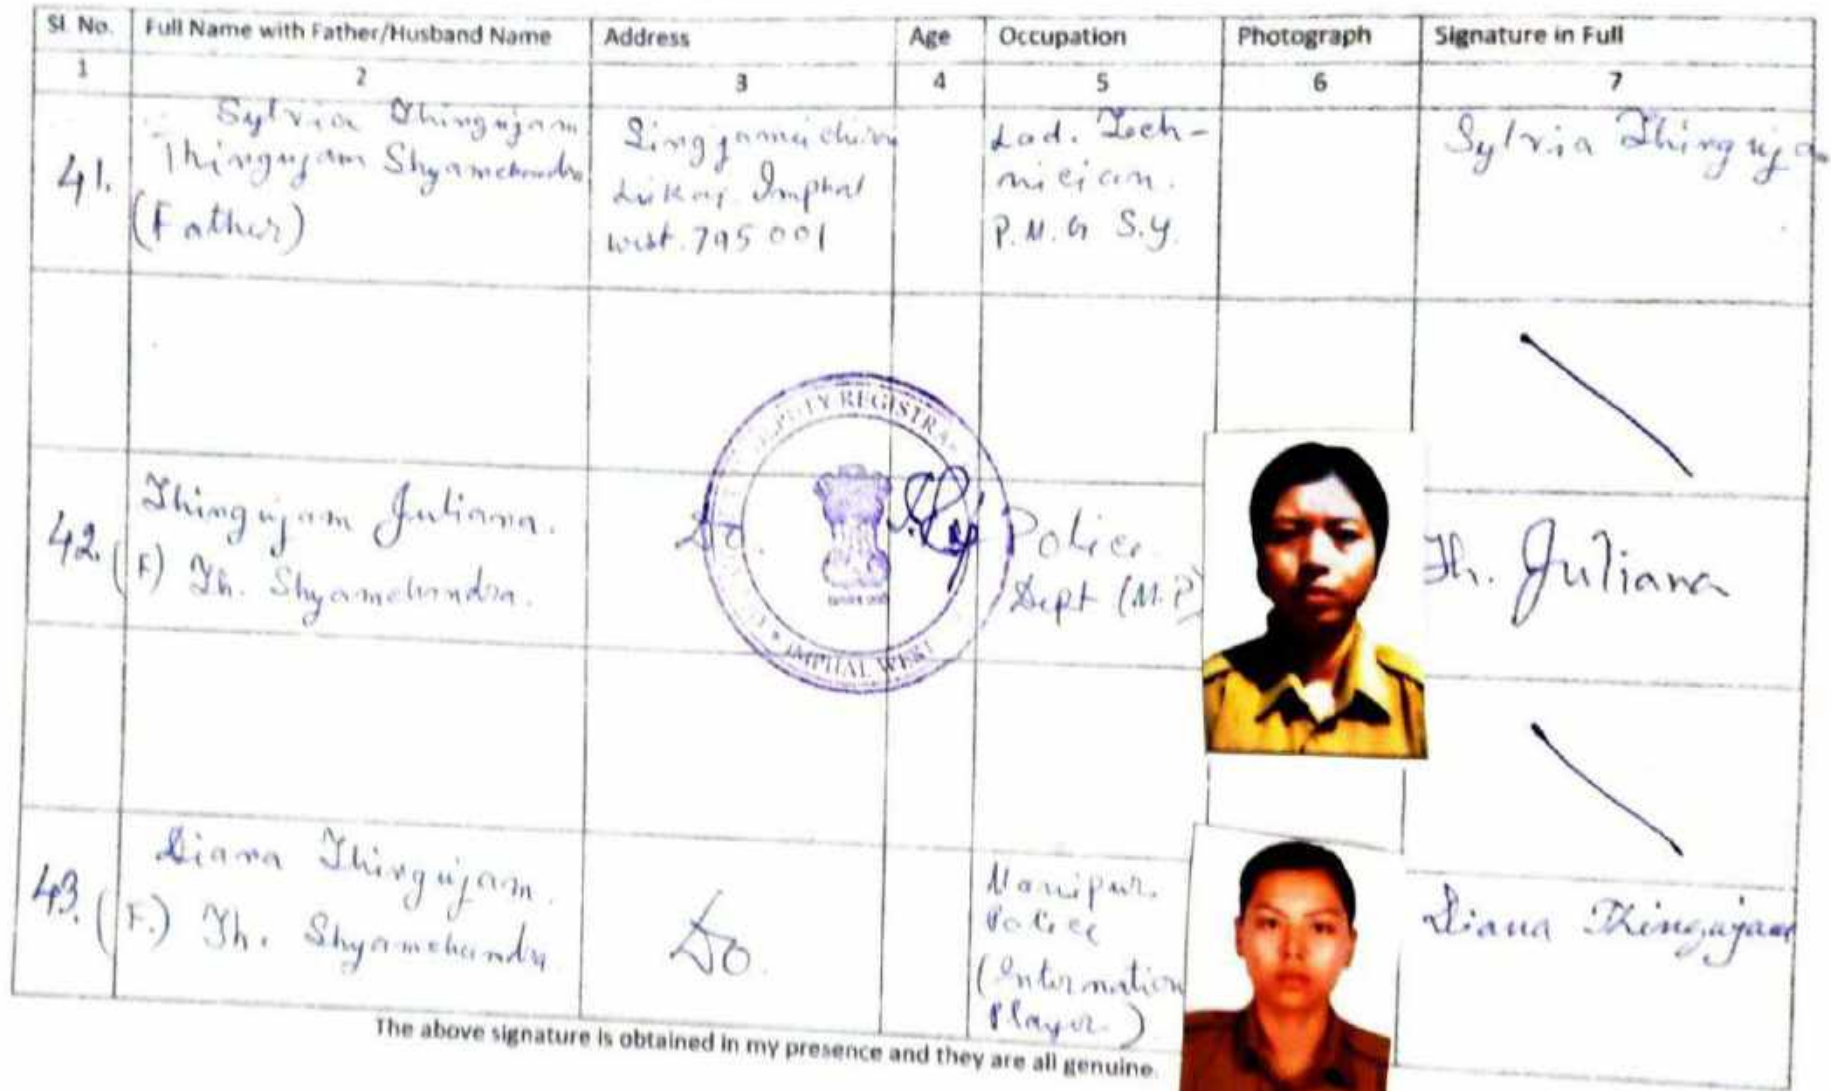 Sl. No. Full Name with Father/Husband Name Address Age Occupation Photograph Signature in Full
1 2 3 4 5 6 7
41.
Sylvia Thingujam
Thingujam Shyamchandra
(Father)
Singjamei
Imphal
west. 795001
Lad. Tech-
nician.
P.M.G S.Y.
Sylvia Thinguja
42.
Thingujam Juliana.
(F) Th. Shyamchandra.
Do.
Police
Dept (M.P)
Th. Juliana
DEPUTY REGISTRA
IMPHAL WEST
43.
Diana Thingujam.
(F.) Th. Shyamchandra
Do.
Manipur.
Police
(Internation
Player.)
Diana Thingujam
The above signature is obtained in my presence and they are all genuine.